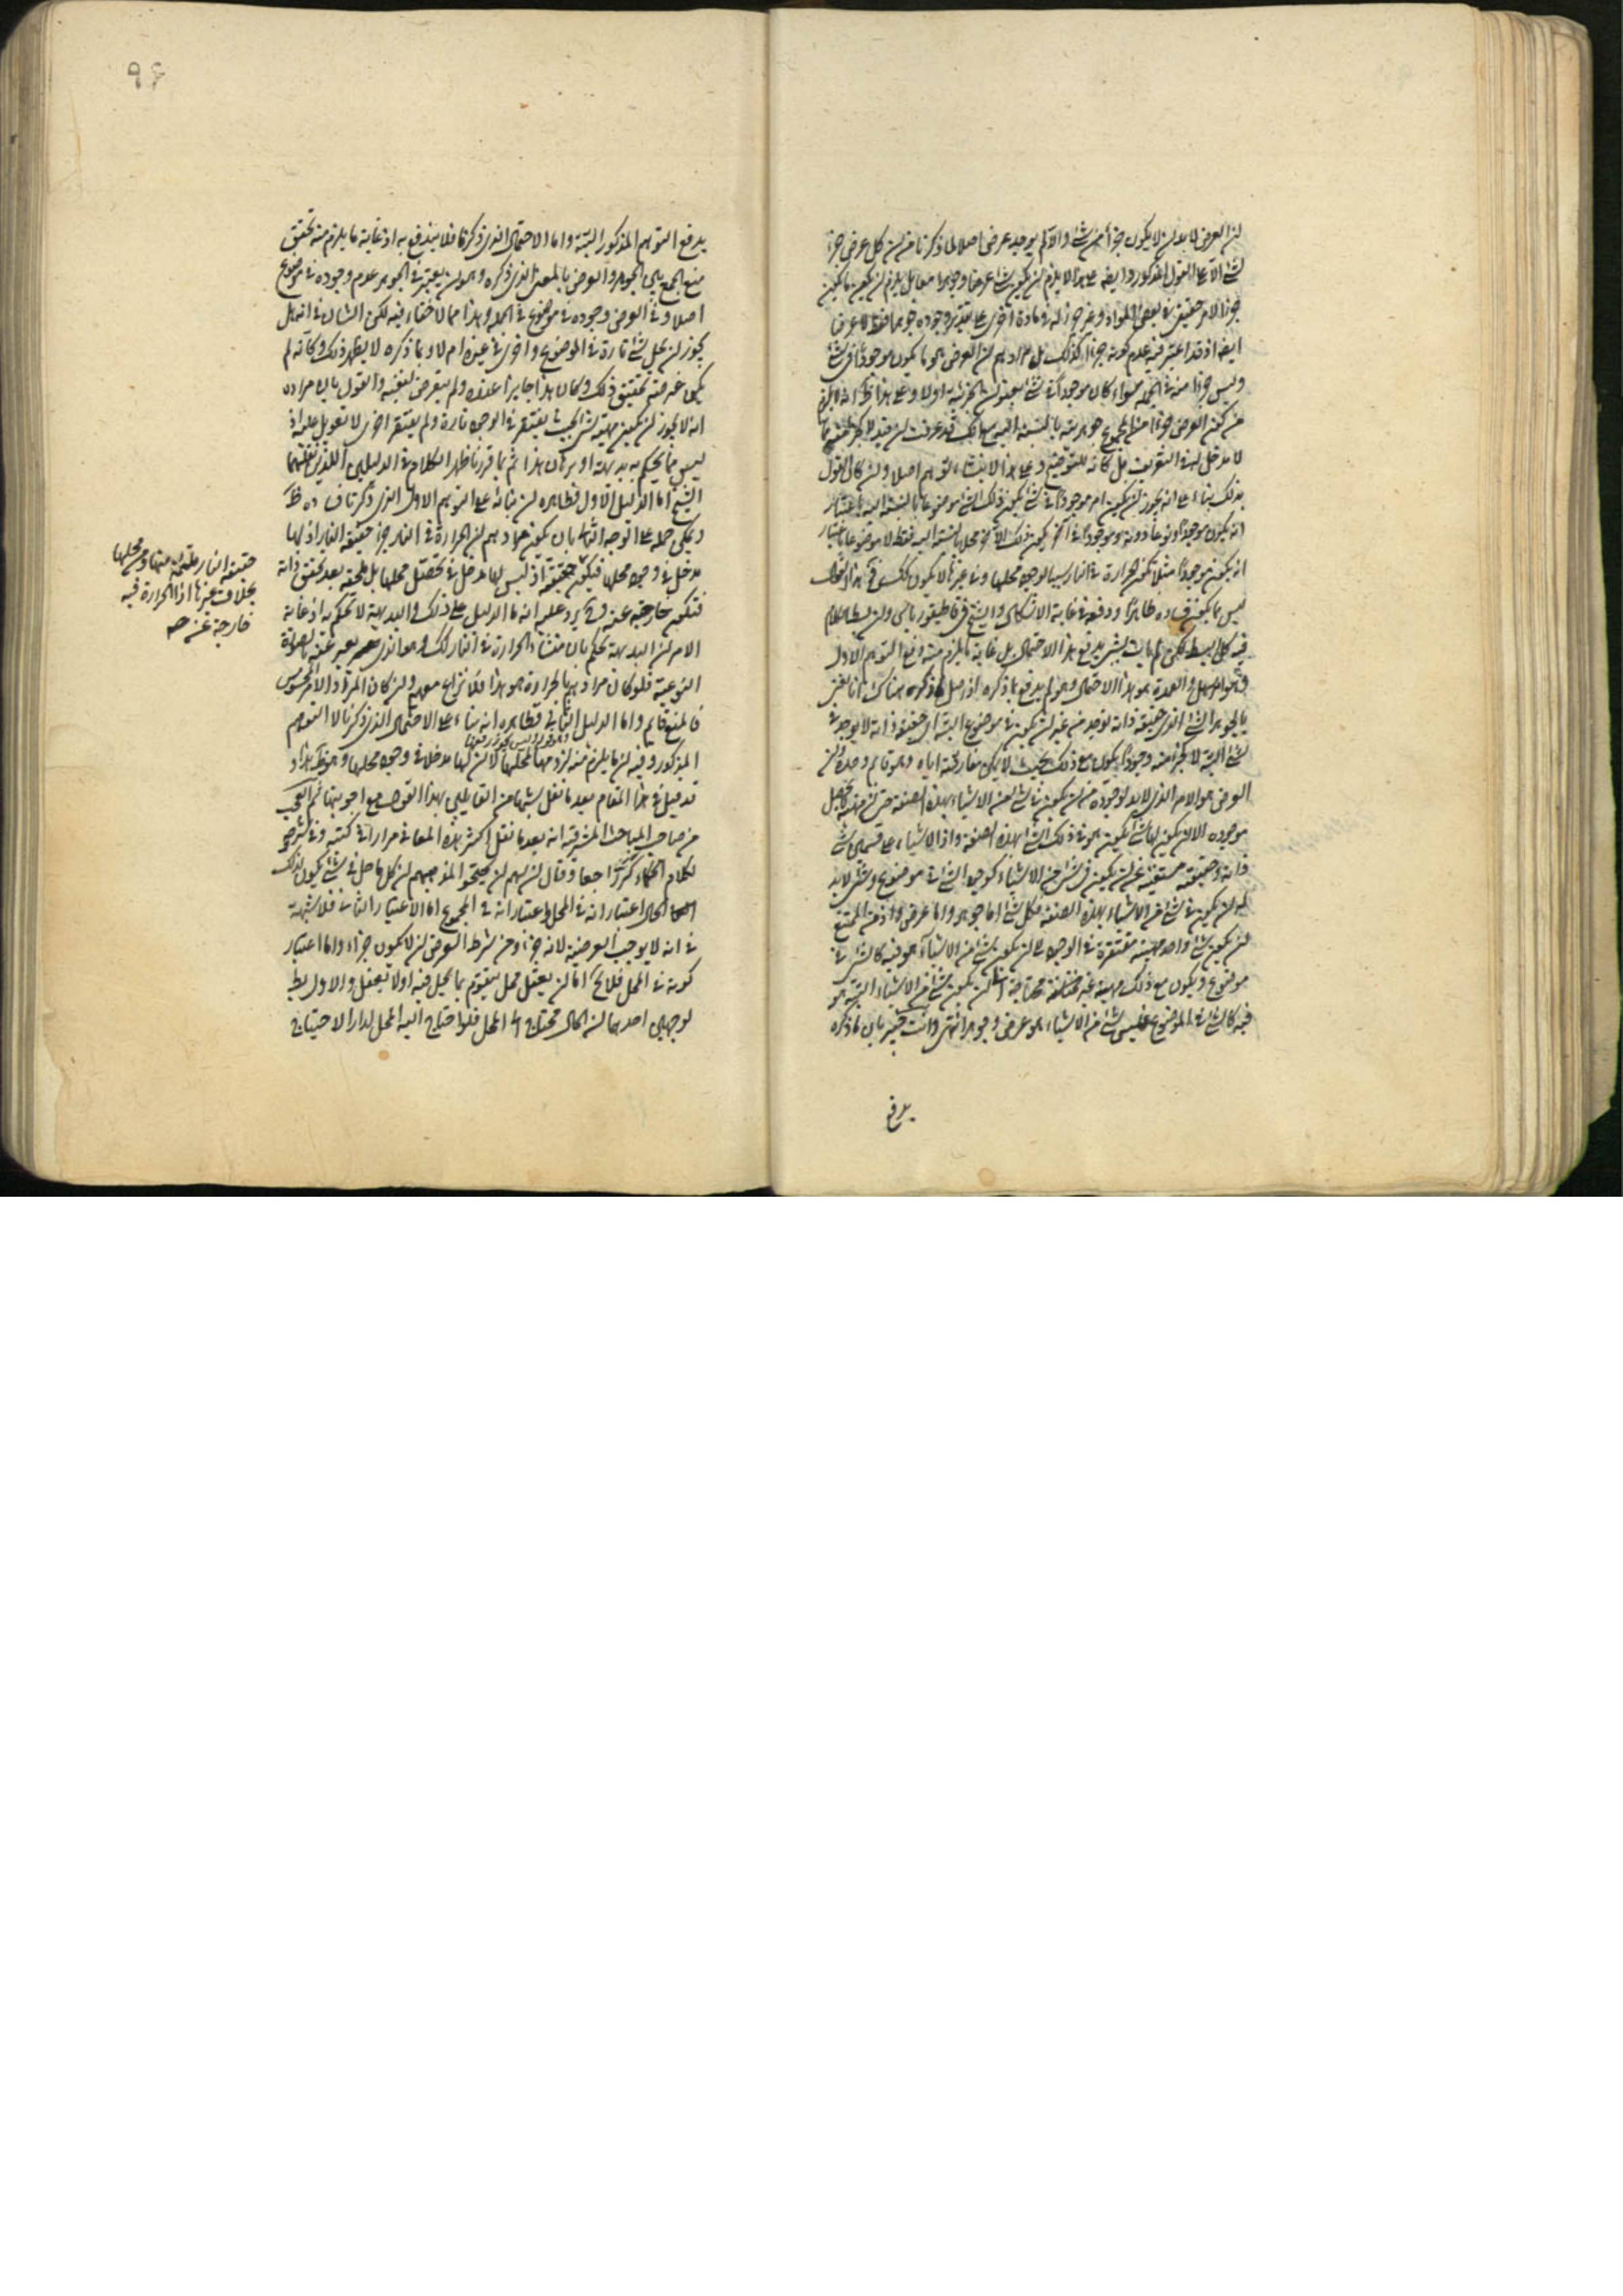 ان العرض لا بد ان لا يكون جزأ من شئ والا لم يوجد عرض اصلا لما ذكرنا من ان كل عرض جزء
لشئ الا على القول المذكور وايضا على هذا لا يلزم ان يكون شئ عرضا وجوهرا معا بل يلزم ان يكون ما يكون
جزأ لامر حقيقى فى بعض المواد وغير جزء له فى مادة اخرى على تقدير وجوده جوهرا فقط لا عرضا
ايضا اذ قد اعتبر فيه عدم كونه جزأ كذلك بل مرادهم ان العرض هو ما يكون موجودا فى شئ
وليس جزأ منه فى الجملة سواء كان موجودا فى شئ بعنوان الجزئية اولا وعلى هذا ظهر انه لا يلزم
من كون العرض جزأ من المجموع جوهريته بالنسبة اليه
لا مدخل له فى التعريف بل كانه للتوضيح وعلى هذا لا يتأتى توهم اصلا وان كان القول
بذلك بناء على انه يجوز ان يكون امر موجودا فى شئ يكون ذلك الشئ موضوعا بالنسبة اليه باعتبار
انه يكون موجودا
ان يكون موجودا مثلا تكون الحرارة فى النار سببا لوجود محلها وفى غيرها لا يكون كذلك
ليس مما يكون فساده ظاهرا ودفعه فى غاية الاشكال والشيخ فى قاطيغورياس وان بسط الكلام
فيه كل البسط لكن لم يأت بشئ يدفع هذا الاحتمال بل غاية ما يلزم منه دفع التوهم الاول
وهو امر سهل والعمدة هو هذا الاحتمال وهو لم يدفع بما ذكره اذ حاصل ما ذكره هناك انا نعنى
بالجوهر الشئ الذى حقيقة ذاته توجد من غير ان يكون فى موضوع البتة اى حقيقة ذاته لا يوجد فى
شئ البتة لا كجزء منه وجودا يكون مع ذلك بحيث لا يمكن مفارقته اياه وهو قائم وحده وان
العرض هو الامر الذى لا بد لوجوده من ان يكون فى شئ من الاشياء بهذه الصفة حتى ان مهيته لا تحصل
موجوده الا ان يكون لها شئ يكون هو فى ذلك الشئ بهذه الصفة واذ الاشياء على قسمين شئ
ذاته وحقيقته مستغنية عن ان يكون فى شئ من الاشياء كوجود الشئ فى موضوع وشئ لا بد
له ان يكون فى شئ من الاشياء بهذه الصفة فكل شئ اما جوهر واما عرض واذ من الممتنع
ان يكون شئ واحد مهيته مفتقرة فى الوجود الى ان يكون شئ من الاشياء هو فيه كالشئ فى
موضوع ويكون مع ذلك مهيته غير محتاجة الى ان يكون شئ من الاشياء البتة هو
فيه كالشئ فى الموضوع فليس شئ من الاشياء هو عرض وجوهر انتهى وانت خبير بان ما ذكره
يدفع
يدفع التوهم المذكور البتة واما الاحتمال الذى ذكرنا فلا يندفع به اذ غاية ما يلزم منه تحقق
منع الجمع بين الجوهر والعرض بالمعنى الذى ذكره وهو ان يعتبر فى الجوهر عدم وجوده فى موضوع
اصلا وفى العرض وجوده فى موضوع فى الجملة وهذا مما لا خفاء فيه لكن الشان فى انه هل
يجوز ان يحل شئ تارة فى الموضوع واخرى فى غيره ام لا وبما ذكره لا يظهر ذلك وكانه لم
يكن غرضه تحقيق ذلك وكان هذا جايزا عنده ولم يتعرض لنفيه والقول بان مراده
انه لا يجوز ان يكون مهية شئ بحيث يفتقر فى الوجود تارة ولم يفتقر اخرى لا تعويل عليه اذ
ليس مما يحكم به بديهة او برهان هذا ثم بما قررنا ظهر الكلام فى الدليلين اللذين نقلهما
الشيخ اما الدليل الاول فظاهره ان بنائه على التوهم الاول الذى ذكرنا فساده ظ
ويمكن حمله على التوجيه الثانى بان يكون مرادهم ان الحرارة فى النار جزء حقيقة النار اذ لها
مدخل فى وجود محلها فيكون حقيقة اذ ليس لها مدخل فى تحصل محلها بل تلحقه بعد تحقق ذاته
فتكون خارجة عنه وح يرد عليه انه ما الدليل على ذلك والبديهة لا تحكم به اذ غاية
الامر ان البديهة تحكم بان منشأ الحرارة فى النار لك وهو الذى يعبر عنه بالصورة
النوعية فلو كان مرادهم بالحرارة هو هذا فلا نزاع معهم وان كان المراد الامر المحسوس
فالمنع قايم واما الدليل الثانى فظاهره انه بناء على الاحتمال الذى ذكرنا لا التوهم
المذكور وفيه ان ما يلزم منه لزومها لمحلها لا ان لها مدخلا فى وجود محلها وهو ظ هذا و
قد قيل فى هذا المقام بعد ما نقل شبها من القايلين بهذا القول مع اجوبتها ثم العجب
من صاحب المباحث المشرقية انه بعد ما نقل اكثر هذه المعانى مرارا فى كتبه وفى شرحه
لكلام الحكماء كر راجعا وقال ان لهم ان يحتجوا لمذهبهم ان كل حاصل فى شئ يكون لذلك
الحال اعتبار انه فى المحل واعتبار انه فى المجموع اما الاعتبار الثانى فلا شبهة
فى انه لا يوجب العرضية لانه جزء ومن شرط العرض ان لا يكون جزء واما اعتبار
كونه فى المحل فلا يخ اما ان يعقل محل يتقوم بما يحل فيه او لا يعقل والاول بط
لوجهين احدهما ان الحال محتاج الى المحل فلو احتاج اليه المحل لدار الاحتياج
حقيقة النار ملتئمة منها ومن محلها
بخلاف غيرها اذ الحرارة فيه
خارجة عنه صح